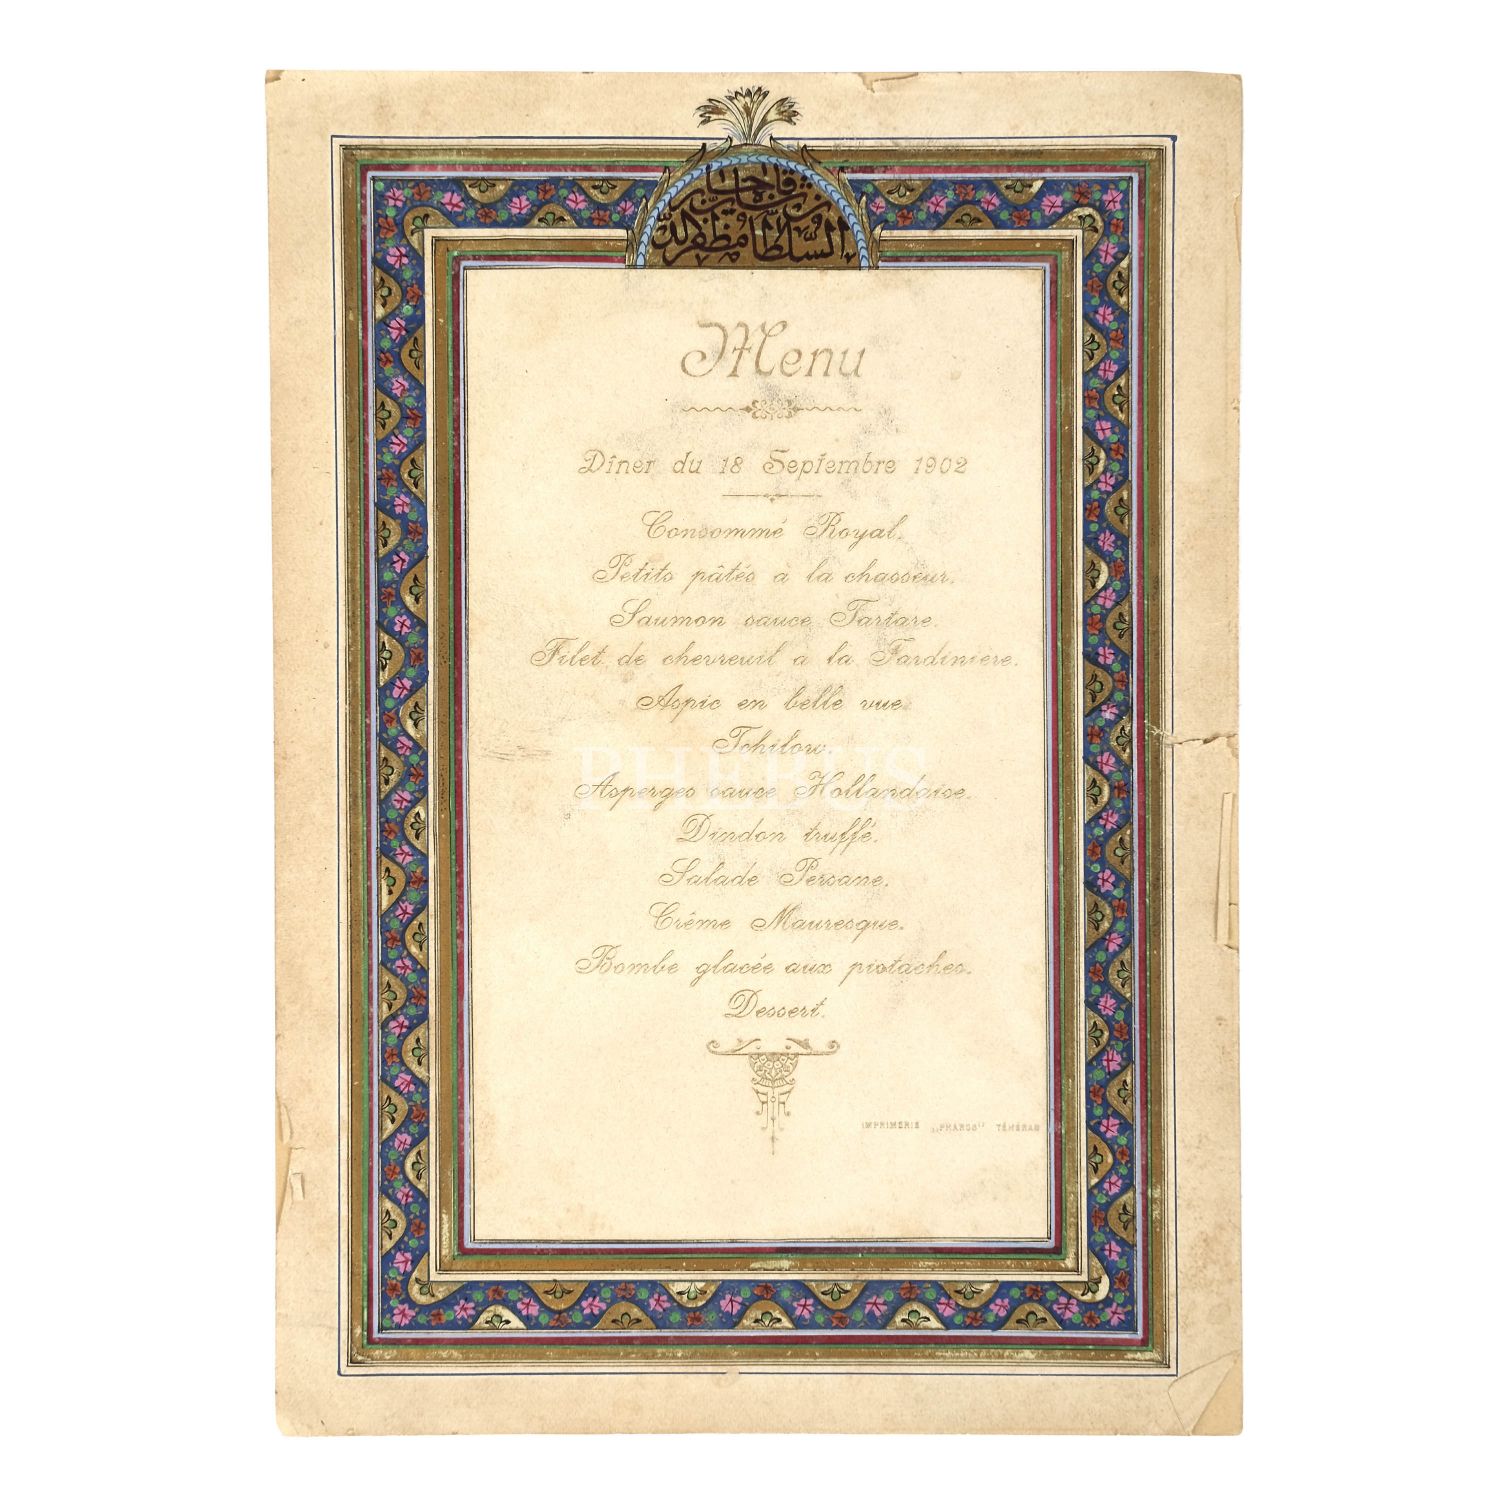 السلطان مظفر الدین شاه قاجار
Menu
Dîner du 18 Septembre 1902
Consommé Royal.
Petits pâtés à la chasseur.
Saumon sauce Tartare.
Filet de chevreuil à la Jardinière.
Aspic en belle vue
Tchilow.
PHEBUS
Asperges sauce Hollandaise.
Dindon truffé.
Salade Persane.
Crême Mauresque.
Bombe glacée aux pistaches.
Dessert.
IMPRIMERIE „PHAROS“ TÉHÉRAN